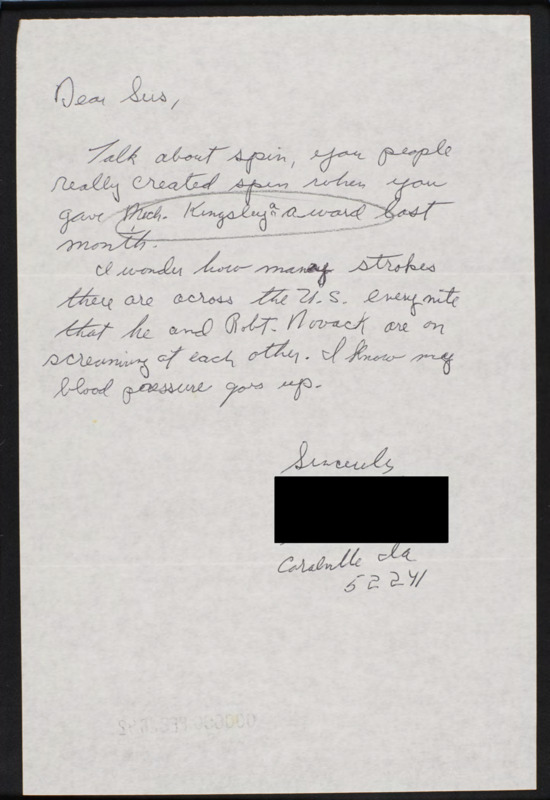 Dear Sirs,
Talk about spin, you people
really created spin when you
gave Mich. Kingsley a award last
month.
I wonder how many strokes
there are across the U.S. every nite
that he and Robt. Novack are on
screaming at each other. I know my
blood pressure goes up.
Sincerely
Coralville Ia
52241